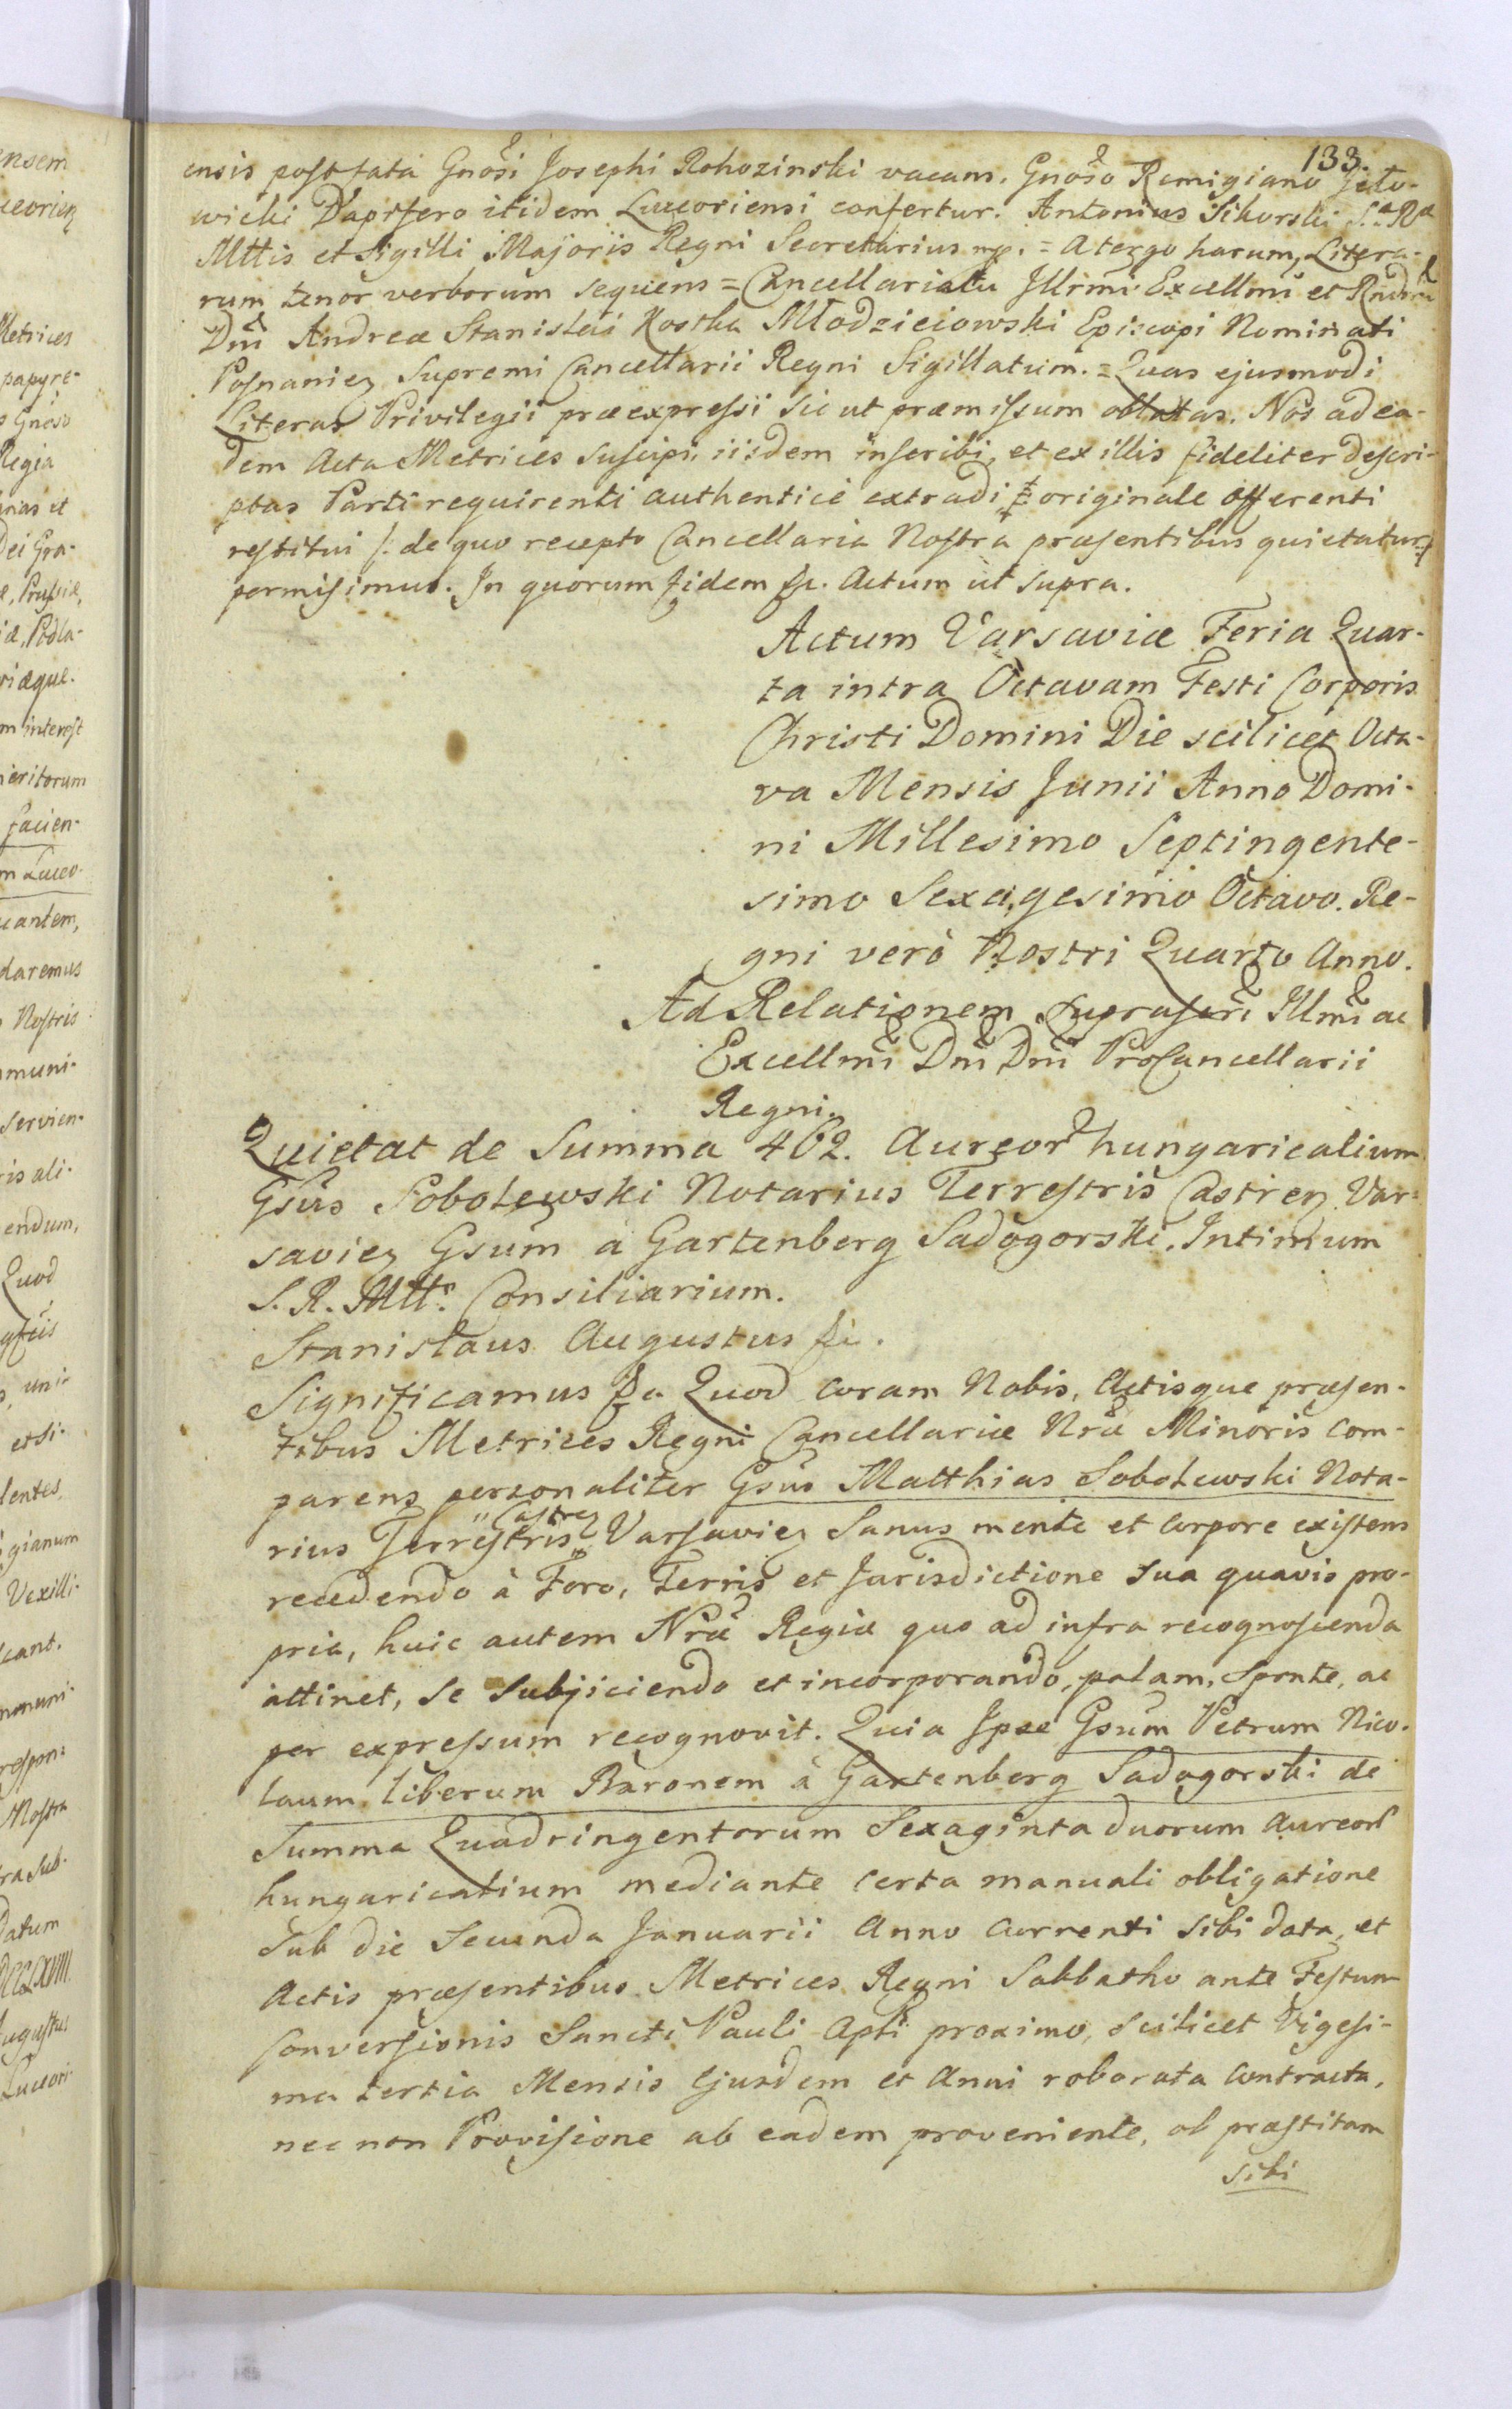 133.
ensis post fata Gnosi Josephi Rohozinski vacans. Gnoso Remigiano Jeło-
wicki Dapifero itidem Luceoriensi confertur. Antonius Sikorski S.æ Ræ
Mttis et Sigilli Majoris Regni Secretarius mp. = A tergo harum, Litera-
rum tenor verborum sequens = Cancellariatu Illrmi Excellmi et Rndmi
Dni Andreæ Stanislai Kostka Młodzieiowski Episcopi Nominati
Posnanien Supremi Cancellarii Regni Sigillatum. = Quas ejusmodi
Literas Privilegii præexpressi sic ut præmissum oblatas. Nos ad ea-
dem Acta Metrices suscipi, iisdem inscribi, et ex illis fideliter descri-
ptas Parti requirenti authentice extradi et originale offerenti
restitui /: de quo recepto Cancellaria Nostra præsentibus quietatur :/
permisimus. In quorum fidem &c. Actum ut supra.
Actum Varsaviæ Feria Quar-
ta intra Octavam Festi Corporis
Christi Domini Die scilicet Octa-
va Mensis Junii Anno Domi-
ni Millesimo Septingente-
simo Sexagesimo Octavo. Re-
gni verò Nostri Quarto Anno.
Ad Relationem suprascri Illmi ac
Excellmi Dni Dni ProCancellarii
Regni.
Quietat de Summa 462. Aureor hungaricalium
Gsus Sobolewski Notarius Terrestris Castren Var=
savien Gsum à Gartenberg Sadogorski, Intimum
S. R. Mttis Consiliarium.
Stanislaus Augustus &c.
Significamus &c. Quod coram Nobis, Actisque præsen-
tibus Metrices Regni Cancellariæ Nræ Minoris com-
parens personaliter Gsus Matthias Sobolewski Nota-
rius Terrestris Castren Varsavien Sanus mente et corpore existens
recedendo à Foro, Terris et Jurisdictione sua quavis pro-
pria, huic autem Nræ Regiæ quo ad infra recognoscenda
attinet, se subjiciendo et incorporando, palam, sponte, ac
per expressum recognovit. Quia Ipse Gsum Petrum Nico-
laum liberum Baronem à Gartenberg Sadogorski de
Summa Quadringentorum Sexaginta duorum Aureor
hungaricalium mediante certa manuali obligatione
sub die Secunda Januarii Anno currenti sibi data, et
Actis præsentibus Metrices Regni Sabbatho ante Festum
Conversionis Sancti Pauli Apli proximo, scilicet Vigesi-
ma tertia Mensis Ejusdem et Anni roborata contracta,
nec non Provisione ab eadem proveniente, ob præstitam
sibi